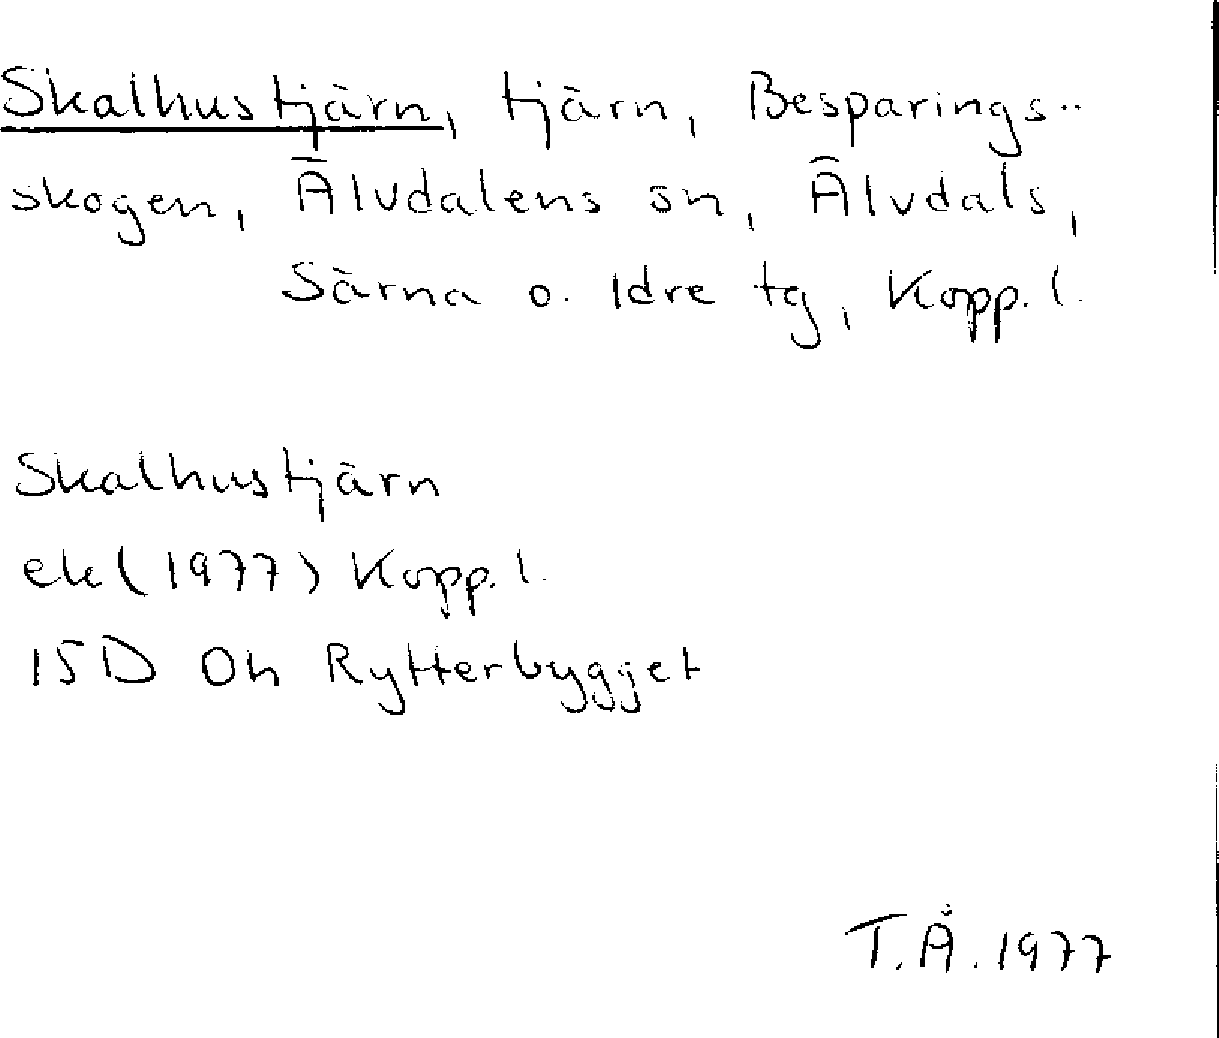 Skalhustjärn, tjärn, Besparings-
skogen, Älvdalens sn, Älvdals,
Särna o. Idre tg, Kopp. l.
Skalhustjärn
ek (1977) Kopp. l.
15D 0h Rytterbygget
T.Å. 1977